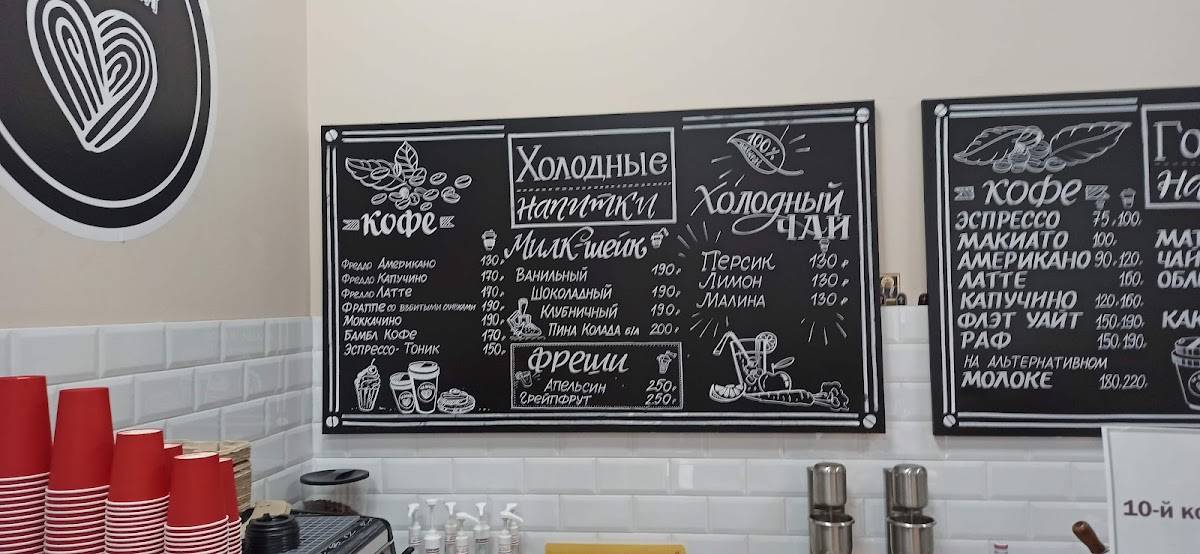 Холодные
напитки
кофе
Фреддо Американо 130₽
Фреддо Капучино 170₽
Фреддо Латте 170₽
Фраппе со взбитыми сливками 190₽
Моккачино 190₽
Бамбл Кофе 170₽
Эспрессо-Тоник 150₽
Милк-шейк
Ванильный 190₽
Шоколадный 190₽
Клубничный 190₽
Пина Колада б/а 200₽
Фреши
Апельсин 250₽
Грейпфрут 250₽
100%
Холодный
ЧАЙ
Персик 130₽
Лимон 130₽
Малина 130₽
Го
На
кофе
Эспрессо 75,100,
Макиато 100,
Американо 90,120,
Латте 160,
Капучино 120,160,
Флэт Уайт 150,190,
Раф 150,190,
На альтернативном
молоке 180,220,
Мат
Чай
Обл
Ка
10-й ко